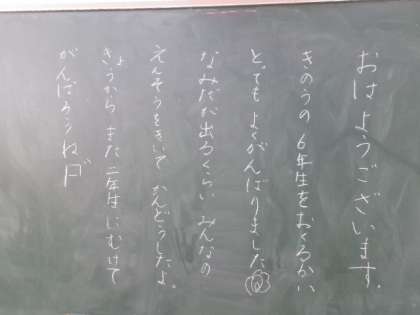 おはようございます。
きのうの6年生をおくるかい
とてもよくがんばりました
なみだが出るくらいみんなの
えんそうをきいてかんどうしたよ。
きょうからまた二年生にむけて
がんばろうね